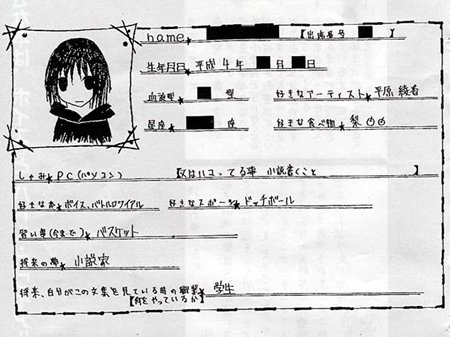 name
【出席番号 】
生年月日 平成4年 月 日
血液型 型
好きなアーティスト 平原綾香
星座 座
好きな食べ物 梨
しゅみ PC(パソコン)
【又はハマってる事 小説書くこと 】
好きな本 ボイス、バトルロワイアル
好きなスポーツ ドッチボール
習い事(今まで) バスケット
将来の夢 小説家
将来、自分がこの文集を見ている時の職業 学生
【何をやっているか】